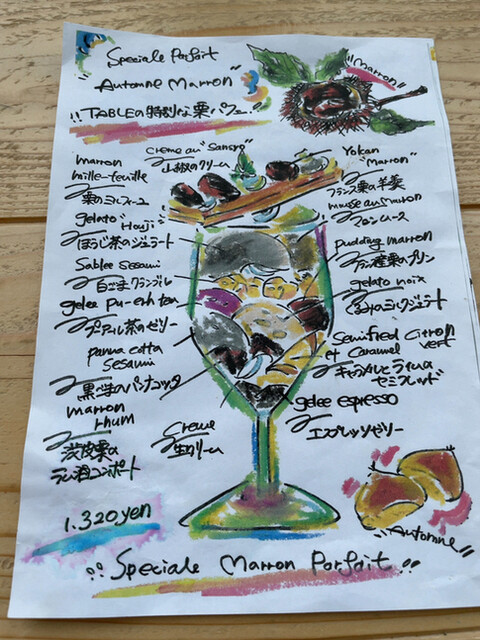 Speciale Parfait
Automne Marron"
"TABLEの特別な栗パフェ"
"Marron"
creme au "Sansyo"
山椒のクリーム
marron
mille-feuille
栗のミルフィーユ
gelato "Houji"
ほうじ茶のジェラート
Sablee Sesami
白ごまクランブル
gelee pu-erh tea
プーアル茶のゼリー
panna cotta
Sesami
黒ごまのパンナコッタ
marron
rhum
渋皮栗の
ラム酒コンポート
Creme
生クリーム
Yokan
"Marron"
フランス栗の羊羹
mousse au marron
マロンムース
pudding marron
栗のプリン
gelato noix
くるみのミルクジェラート
Semifred Citron
et Caramel vert
キャラメルとライムの
セミフレッド
gelee espresso
エスプレッソゼリー
1.320yen
"Automne"
"Speciale Marron Parfait"